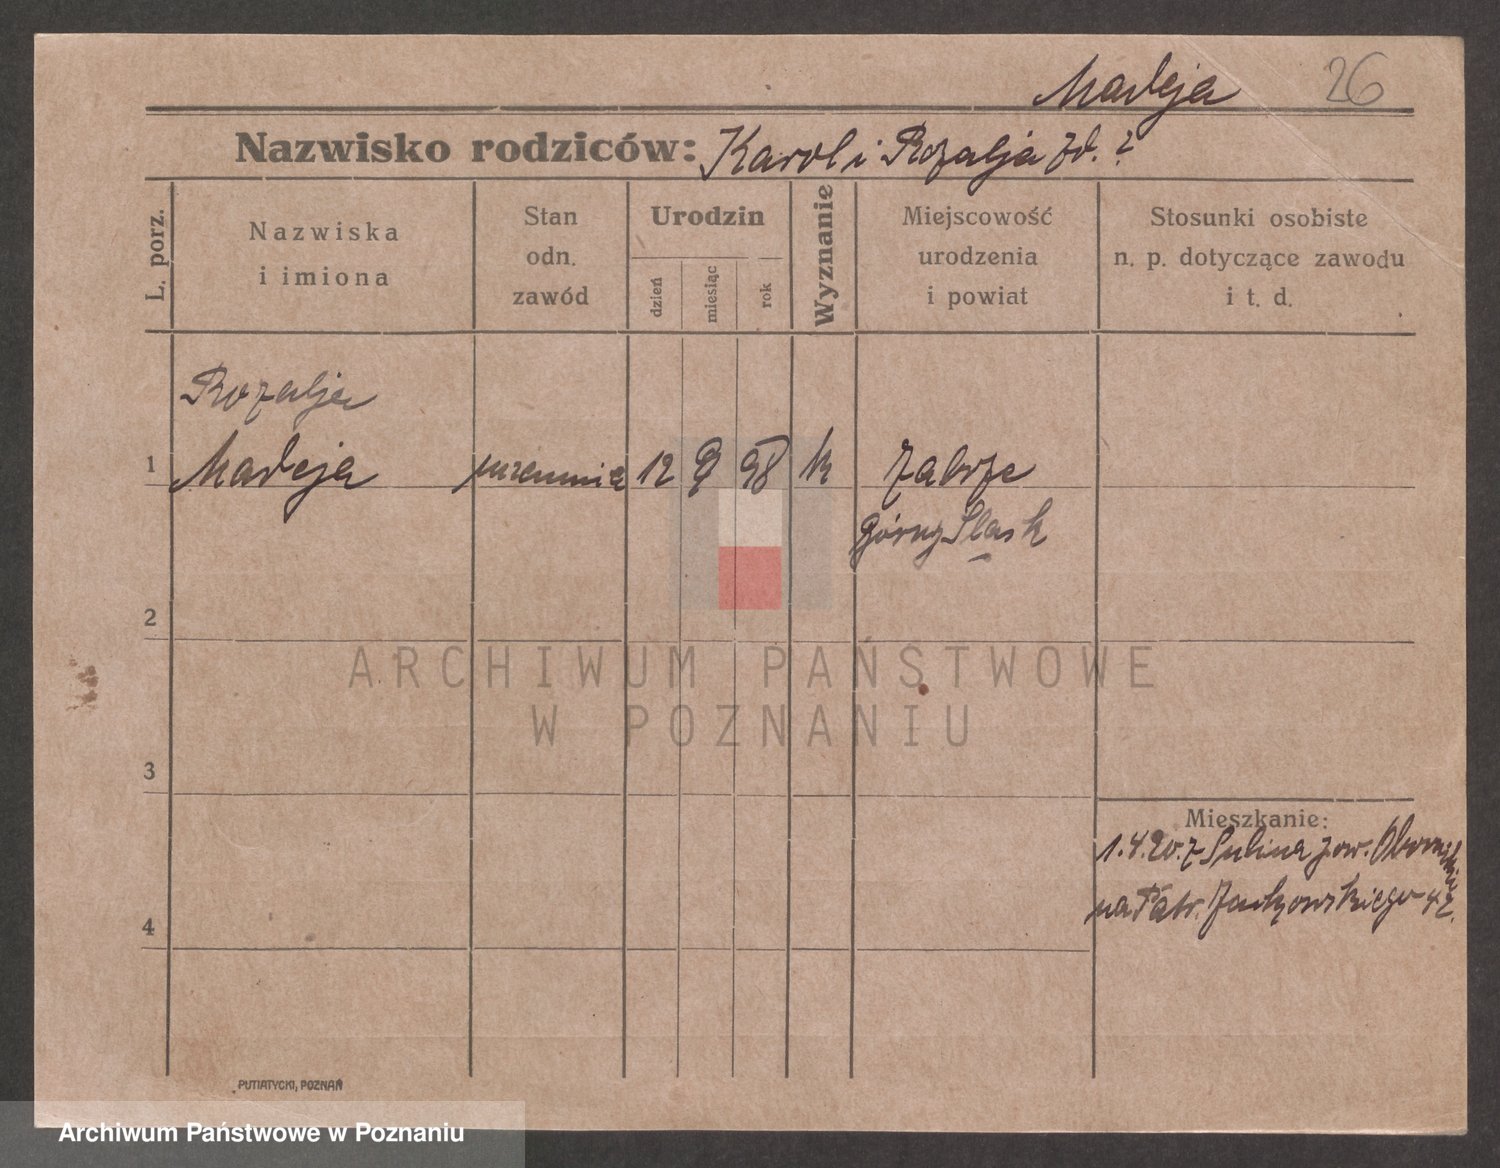 Madeja
26
Nazwisko rodziców: Karol i Rozalja zd. ?
L. porz.
Nazwiska
i imiona
Stan
odn.
zawód
Urodzin
dzień
miesiąc
rok
Wyznanie
Miejscowość
urodzenia
i powiat
Stosunki osobiste
n. p. dotyczące zawodu
i t. d.
Rozalja
1 Madeja 12 9 98 k Zabrze
Górny Śląsk
2
ARCHIWUM PAŃSTWOWE
W POZNANIU
3
Mieszkanie:
1.4.20. z Sulina pow.
na Patr. Jackowskiego 42.
4
PUTIATYCKI, POZNAŃ
Archiwum Państwowe w Poznaniu